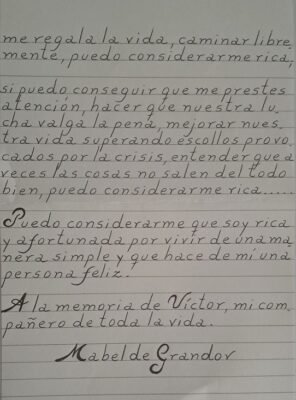 me regala la vida, caminar libre
mente, puedo considerarme rica,
si puedo conseguir que me prestes
atención, hacer que nuestra lu
cha valga la pena, mejorar nues
tra vida superando escollos provo
cados por la crisis, entender que a
veces las cosas no salen del todo
bien, puedo considerarme rica......
Puedo considerarme que soy rica
y afortunada por vivir de una ma
nera simple y que hace de mí una
persona feliz.
A la memoria de Víctor, mi com
pañero de toda la vida.
Mabel de Grandov